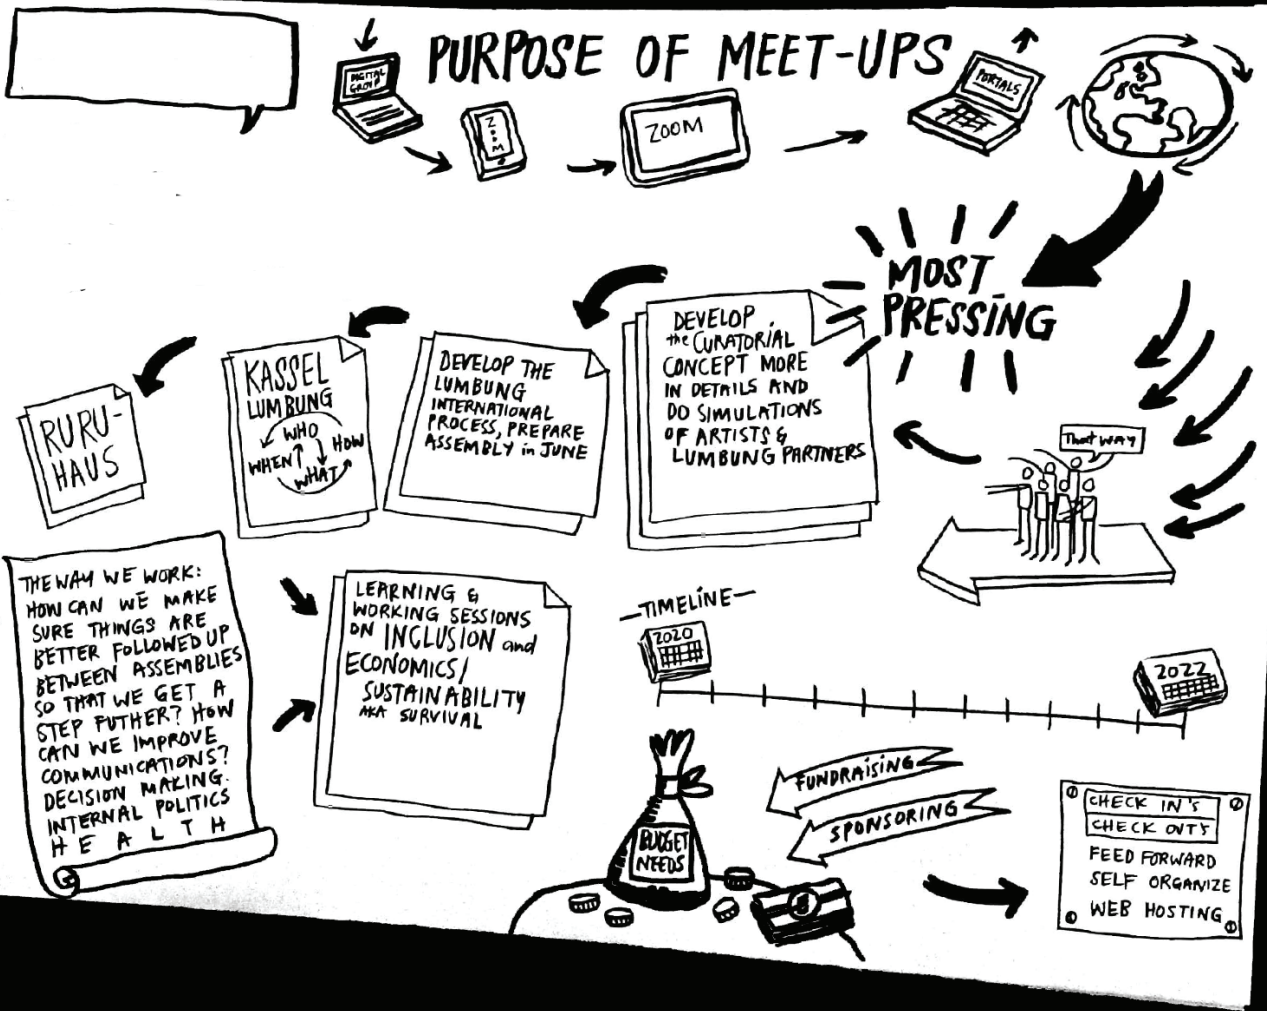 PURPOSE OF MEET-UPS
DIGITAL
GROUP
ZOOM
ZOOM
PORTALS
MOST
PRESSING
DEVELOP
the CURATORIAL
CONCEPT MORE
IN DETAILS AND
DO SIMULATIONS
OF ARTISTS &
LUMBUNG PARTNERS
DEVELOP THE
LUMBUNG
INTERNATIONAL
PROCESS, PREPARE
ASSEMBLY in JUNE
KASSEL
LUMBUNG
WHO
HOW
WHEN
WHAT
RURU-
HAUS
That WAY
THE WAY WE WORK:
HOW CAN WE MAKE
SURE THINGS ARE
BETTER FOLLOWED UP
BETWEEN ASSEMBLIES
SO THAT WE GET A
STEP FUTHER? HOW
CAN WE IMPROVE
COMMUNICATIONS?
DECISION MAKING.
INTERNAL POLITICS
HEALTH
LEARNING &
WORKING SESSIONS
ON INCLUSION and
ECONOMICS/
SUSTAINABILITY
AKA SURVIVAL
—TIMELINE—
2020
2022
BUDGET
NEEDS
FUNDRAISING
SPONSORING
CHECK IN'S
CHECK OUT'S
FEED FORWARD
SELF ORGANIZE
WEB HOSTING